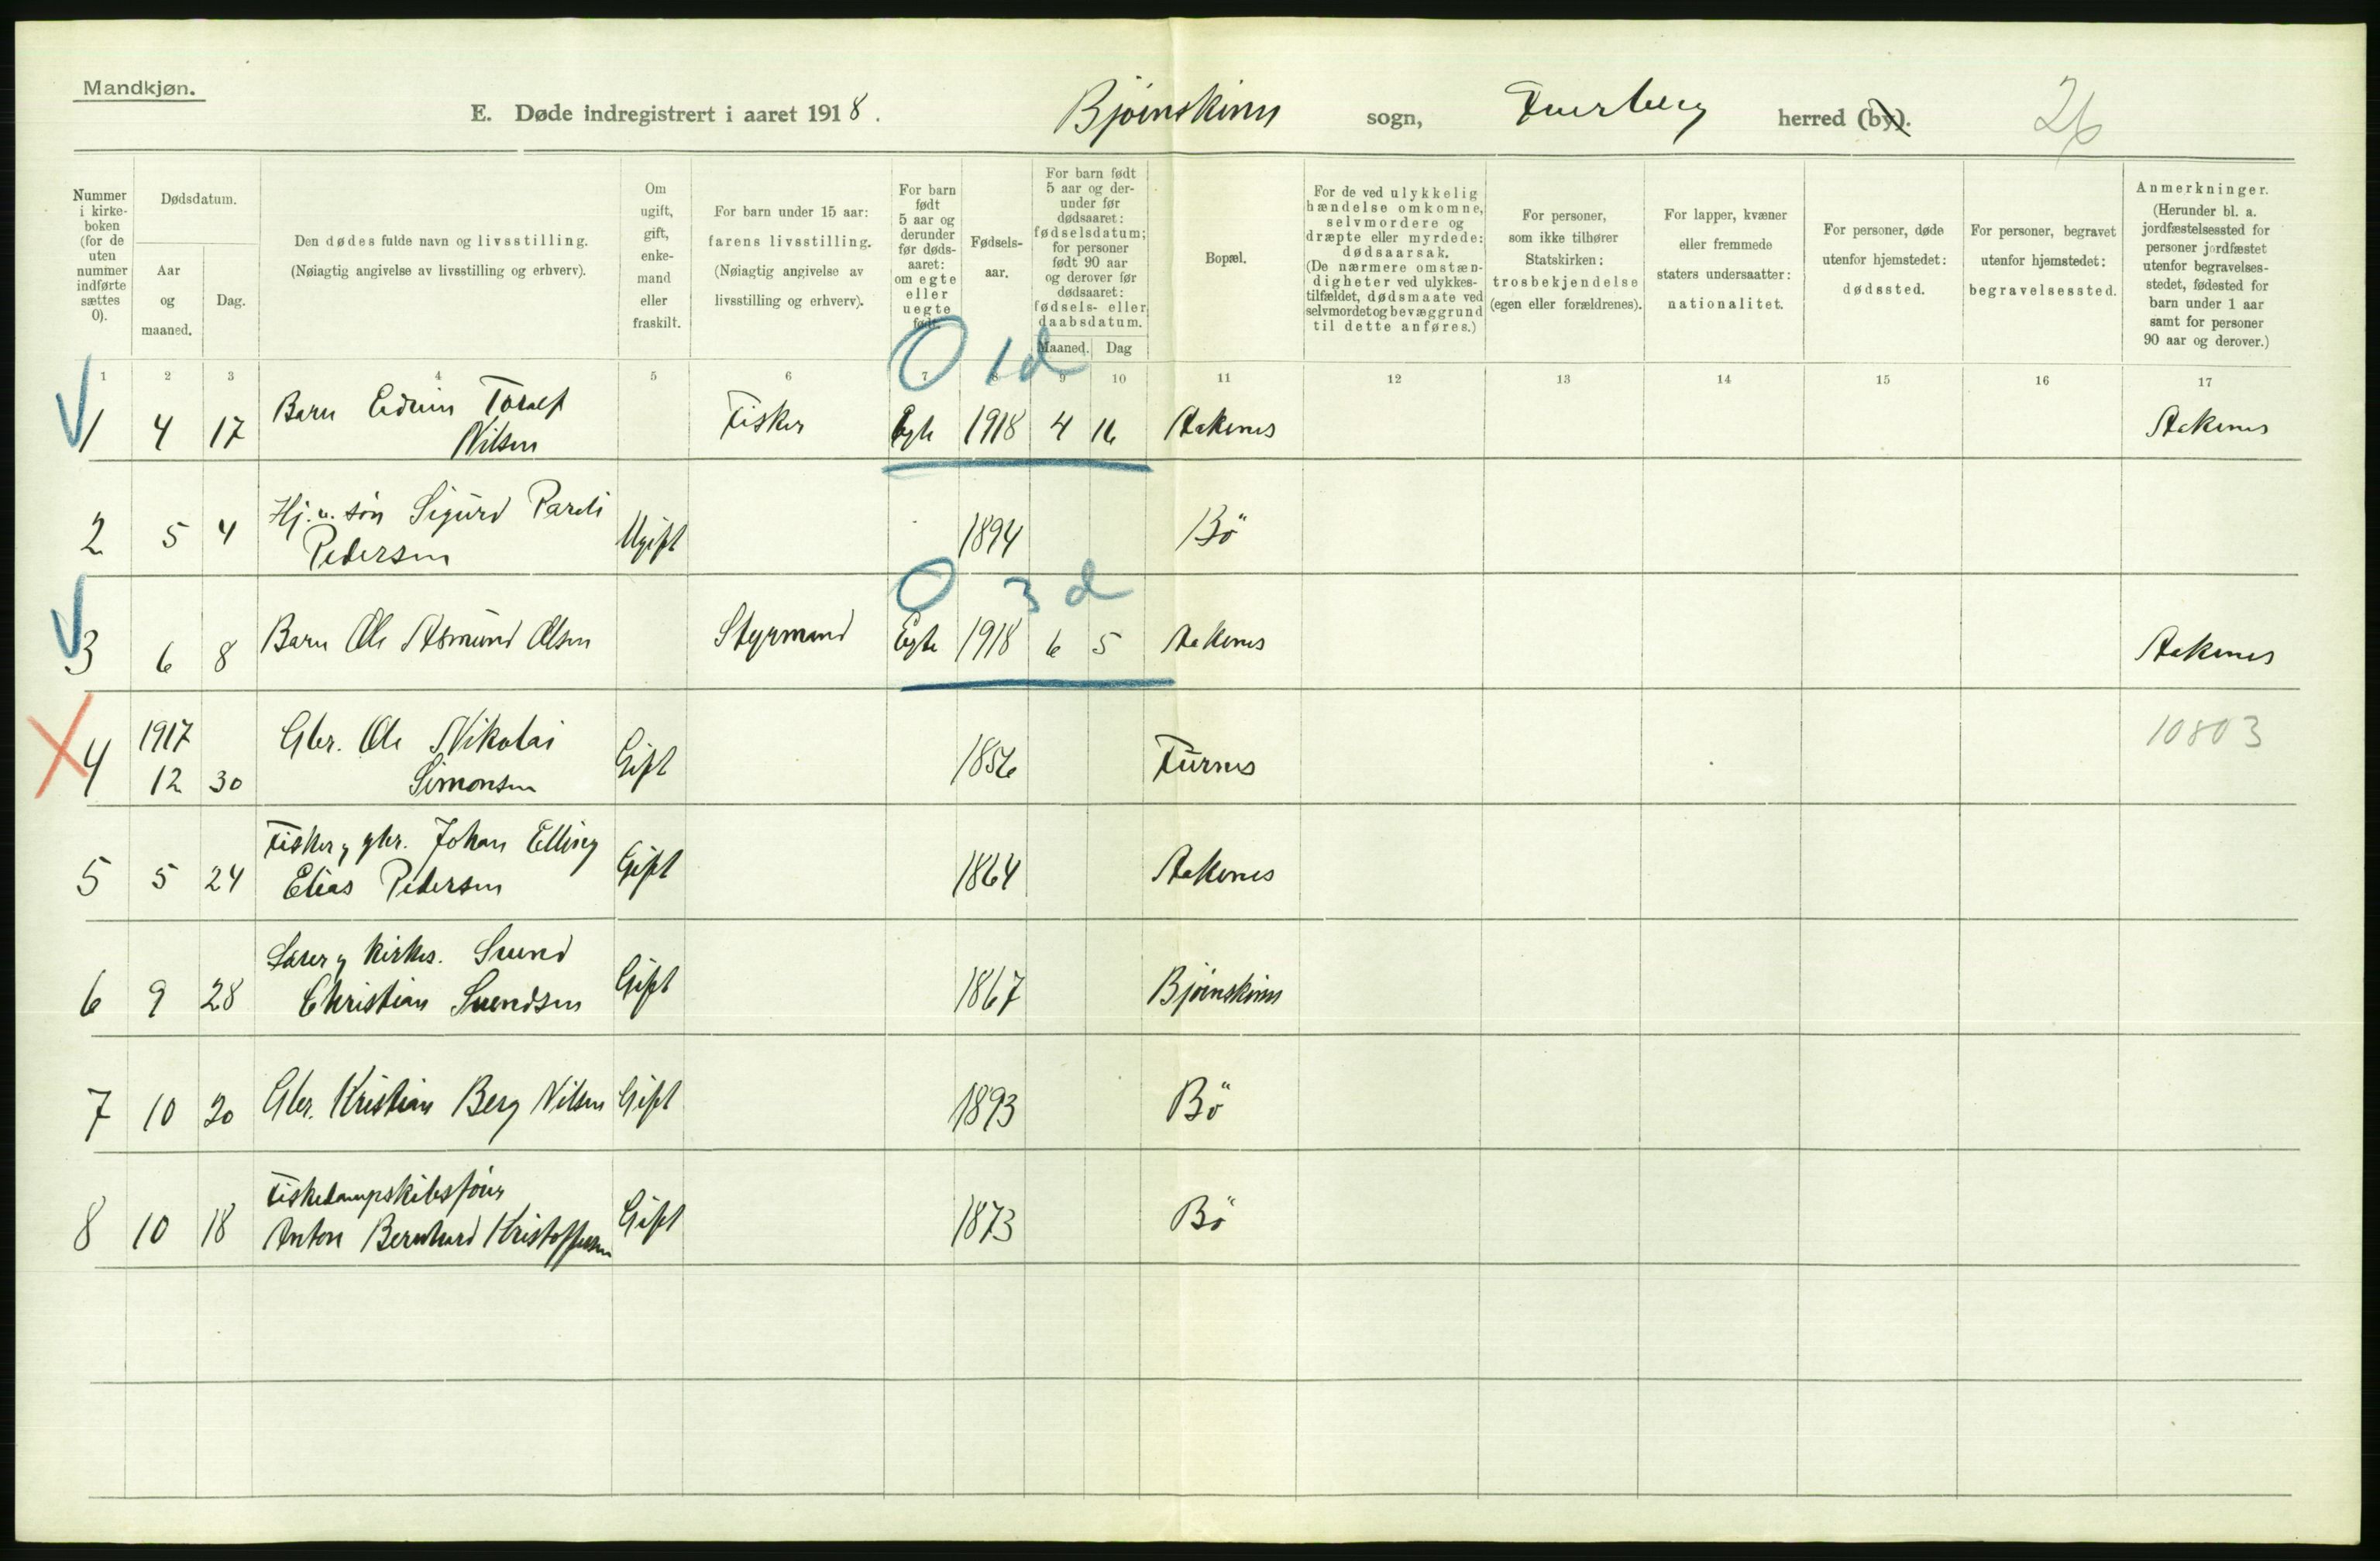 Mandkjøn.
E. Døde indregistrert i aaret 1918. Bjørnskinn sogn, Dverberg herred (by). 26
Nummer i kirke-boken (for de uten nummer indførte sættes 0).
Dødsdatum.
Aar og maaned.
Dag.
Den dødes fulde navn og livsstilling.
(Nøiagtig angivelse av livsstilling og erhverv).
Om ugift, gift, enke-mand eller fraskilt.
For barn under 15 aar: farens livsstilling.
(Nøiagtig angivelse av livsstilling og erhverv).
For barn født 5 aar og derunder før døds-aaret: om egte eller uegte født.
Fødsels-aar.
For barn født 5 aar og der-under før dødsaaret: fødselsdatum; for personer født 90 aar og derover før dødsaaret: fødsels- eller daabsdatum.
Maaned. Dag
Bopæl.
For de ved ulykkelig hændelse omkomne, selvmordere og dræpte eller myrdede: dødsaarsak.
(De nærmere omstæn-digheter ved ulykkes-tilfældet, dødsmaate ved selvmordet og bevæggrund til dette anføres.)
For personer, som ikke tilhører Statskirken: trosbekjendelse (egen eller forældrenes).
For lapper, kvæner eller fremmede staters undersaatter: nationalitet.
For personer, døde utenfor hjemstedet: dødssted.
For personer, begravet utenfor hjemstedet: begravelsessted.
Anmerkninger.
(Herunder bl. a. jordfæstelsessted for personer jordfæstet utenfor begravelses-stedet, fødested for barn under 1 aar samt for personer 90 aar og derover.)
1 2 3 4 5 6 7 8 9 10 11 12 13 14 15 16 17
0 1d
1 4 17 Barn Edvin Toralf Nilsen Fisker Egte 1918 4 16 Aakenes Aakenes
2 5 4 Hj. v. søn Sigurd Pareli Pedersen Ugift 1894 Bö
0 3 d
3 6 8 Barn Ole Asmund Olsen Styrmand Egte 1918 6 5 Aakenes Aakenes
4 1917 12 30 Gbr. Ole Nikolai Simonsen Gift 1856 Furnes 10803
5 5 24 Fisker og gbr. Johan Elling Elias Pedersen Gift 1864 Aakenes
6 9 28 Lærer og kirkes. Svend Christian Svendsen Gift 1867 Bjørnskinn
7 10 20 Gbr. Kristian Berg Nilsen Gift 1893 Bö
8 10 18 Fiskedampskibsfører Anton Bernhard Kristoffersen Gift 1873 Bö